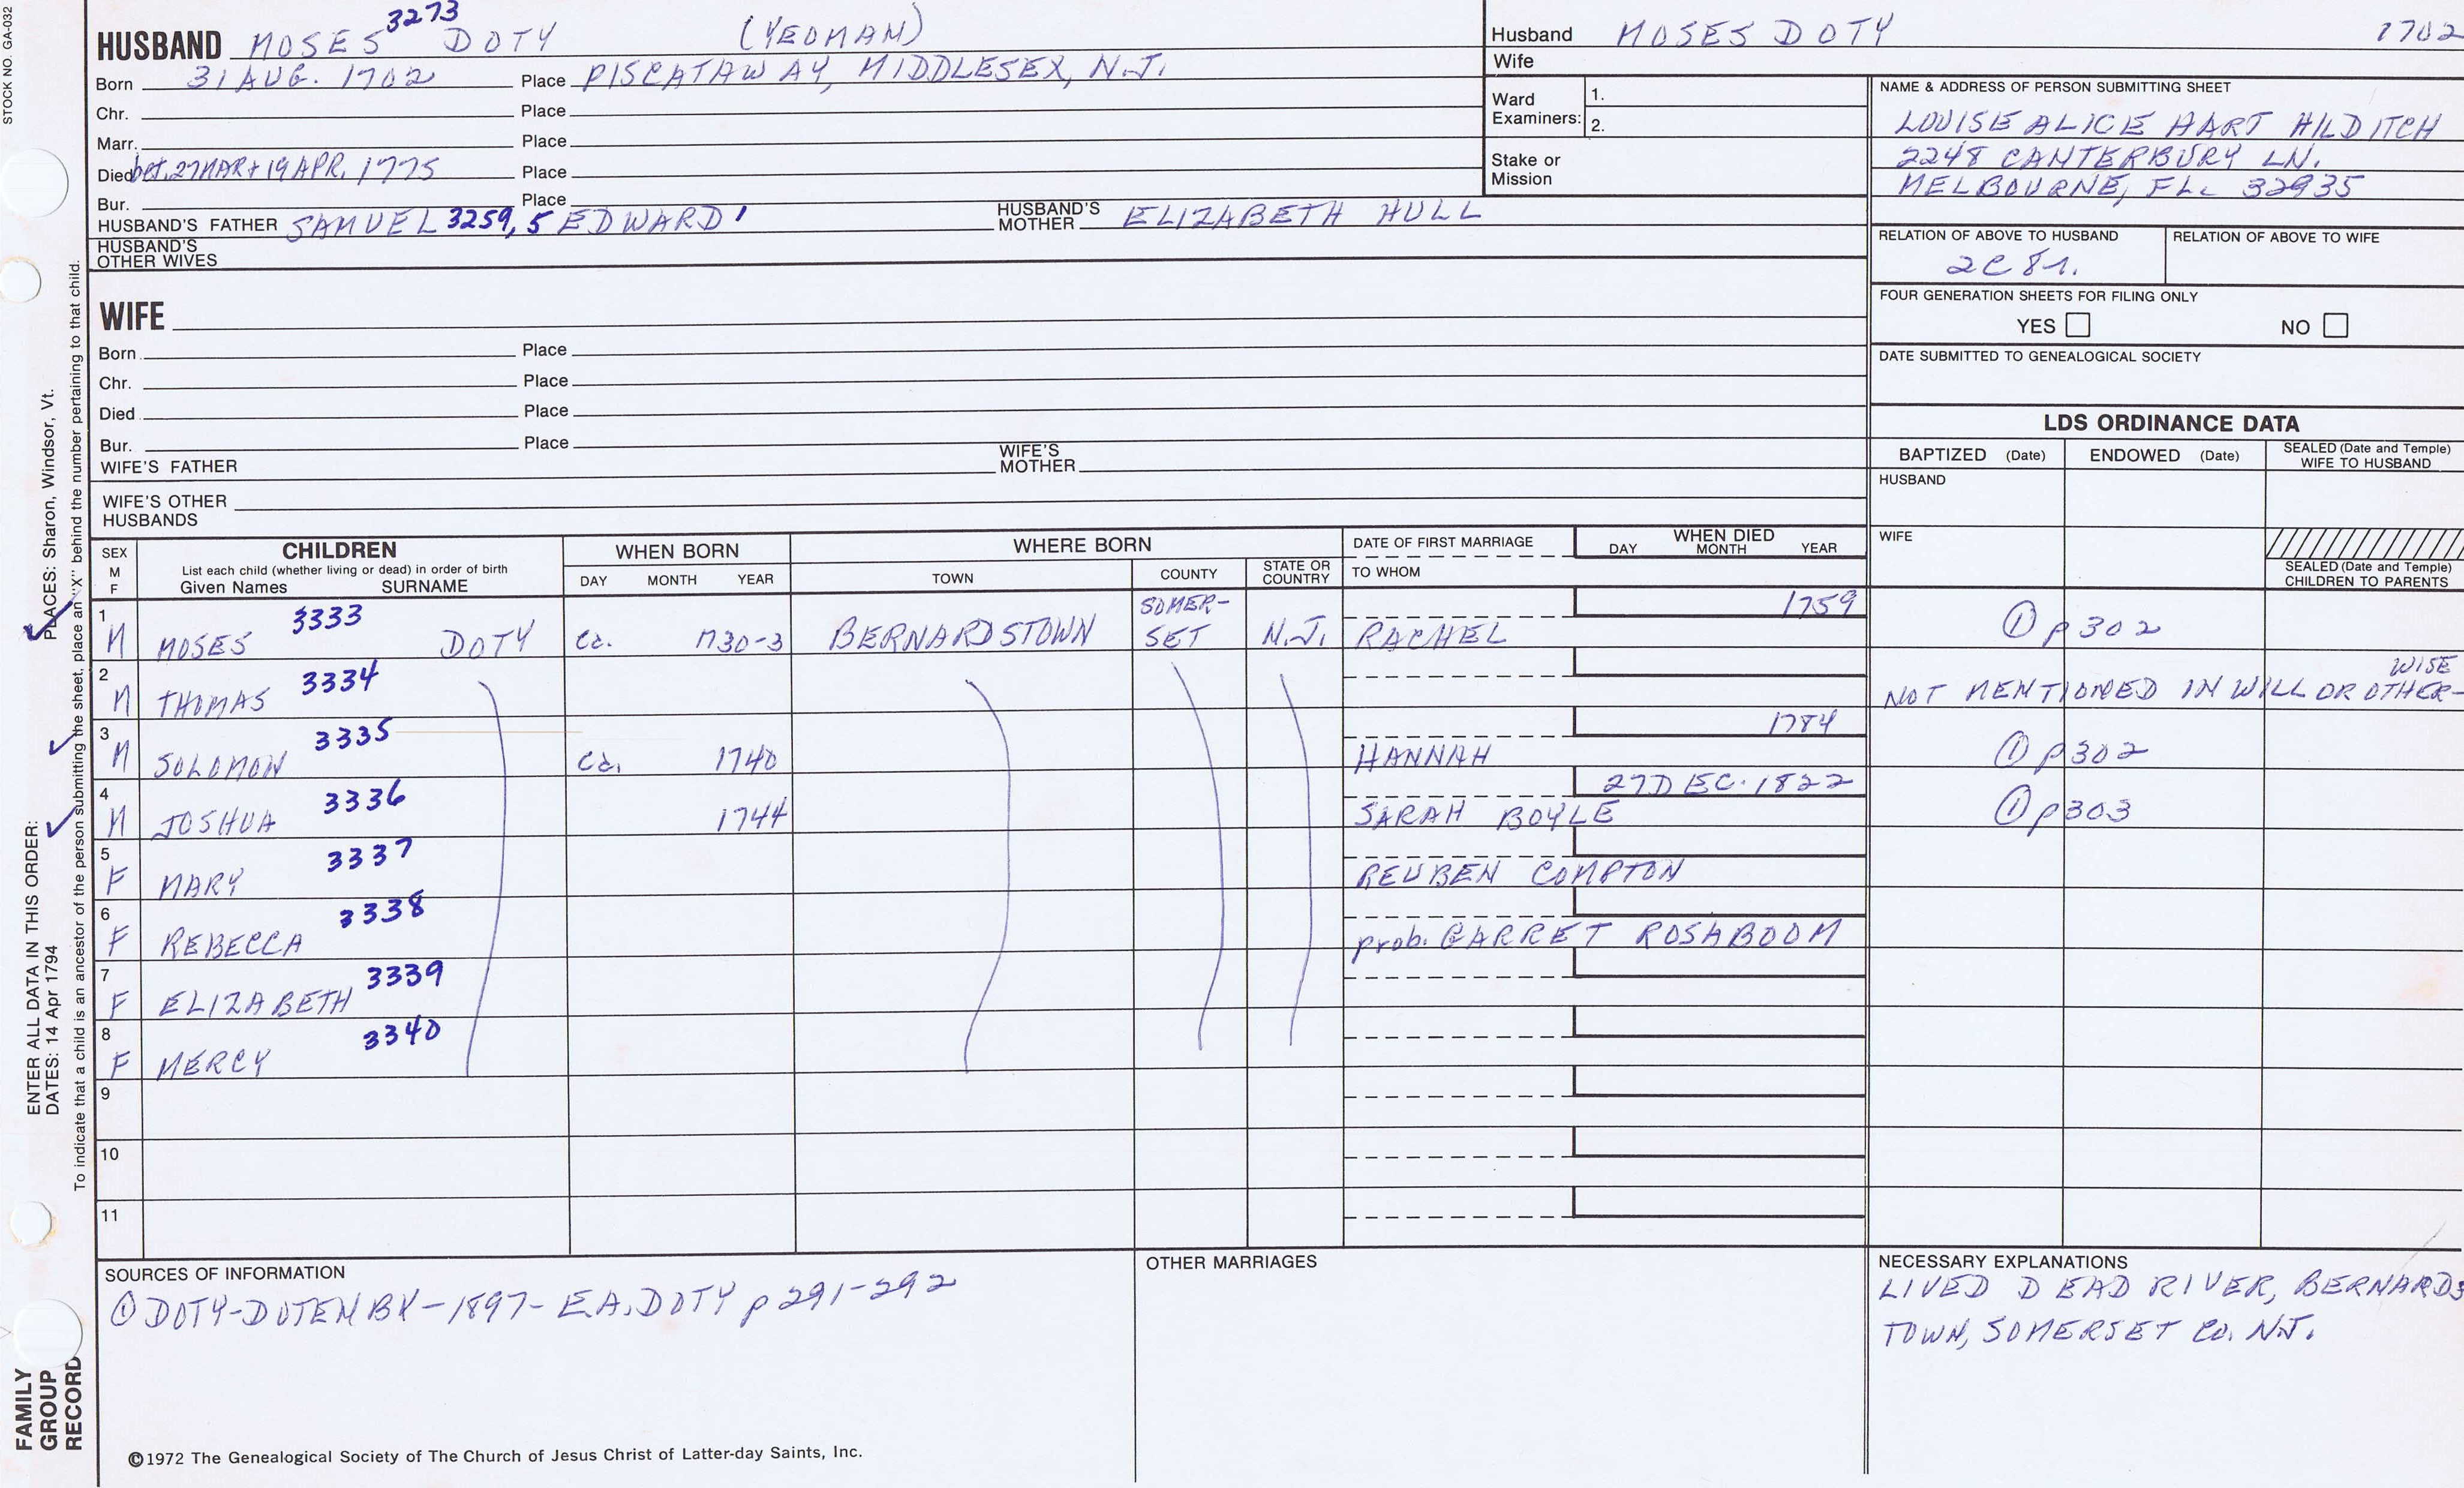 STOCK NO. GA-032
HUSBAND MOSES 3273 DOTY (YEOMAN)
Born 31 AUG. 1702 Place PISCATAWAY, MIDDLESEX, N.J.
Chr. Place
Marr. Place
Died bet. 27 MAR + 19 APR. 1775 Place
Bur. Place
HUSBAND'S FATHER SAMUEL 3259, 5 EDWARD 1 HUSBAND'S MOTHER ELIZABETH HULL
HUSBAND'S OTHER WIVES
WIFE
Born Place
Chr. Place
Died Place
Bur. Place
WIFE'S FATHER WIFE'S MOTHER
WIFE'S OTHER HUSBANDS
Husband MOSES DOTY 1702
Wife
Ward Examiners: 1.
2.
Stake or Mission
NAME & ADDRESS OF PERSON SUBMITTING SHEET
LOUISE ALICE HART HILDITCH
2248 CANTERBURY LN.
MELBOURNE, FL. 32935
RELATION OF ABOVE TO HUSBAND RELATION OF ABOVE TO WIFE
2C 8r.
FOUR GENERATION SHEETS FOR FILING ONLY
YES NO
DATE SUBMITTED TO GENEALOGICAL SOCIETY
LDS ORDINANCE DATA
BAPTIZED (Date) ENDOWED (Date) SEALED (Date and Temple) WIFE TO HUSBAND
HUSBAND
WIFE
SEALED (Date and Temple) CHILDREN TO PARENTS
SEX M F
CHILDREN
List each child (whether living or dead) in order of birth
Given Names SURNAME
WHEN BORN
DAY MONTH YEAR
WHERE BORN
TOWN COUNTY STATE OR COUNTRY
DATE OF FIRST MARRIAGE
TO WHOM
WHEN DIED
DAY MONTH YEAR
1 M MOSES 3333 DOTY ca. 1730-3 BERNARDSTOWN SOMER-SET N.J. RACHEL 1759 ① p302
2 M THOMAS 3334 NOT MENTIONED IN WILL OR OTHER-WISE
3 M SOLOMON 3335 ca. 1740 HANNAH 1784 ① p302
4 M JOSHUA 3336 1744 SARAH BOYLE 27 DEC. 1822 ① p303
5 F MARY 3337 REUBEN COMPTON
6 F REBECCA 3338 prob. GARRET ROSABOOM
7 F ELIZABETH 3339
8 F MERCY 3340
9
10
11
SOURCES OF INFORMATION
① DOTY-DOTEN BK - 1897 - E.A. DOTY p 291-292
OTHER MARRIAGES
NECESSARY EXPLANATIONS
LIVED DEAD RIVER, BERNARDS
TOWN, SOMERSET CO. N.J.
©1972 The Genealogical Society of The Church of Jesus Christ of Latter-day Saints, Inc.
FAMILY GROUP RECORD
ENTER ALL DATA IN THIS ORDER:
DATES: 14 Apr 1794
PLACES: Sharon, Windsor, Vt.
To indicate that a child is an ancestor of the person submitting the sheet, place an "X" behind the number pertaining to that child.